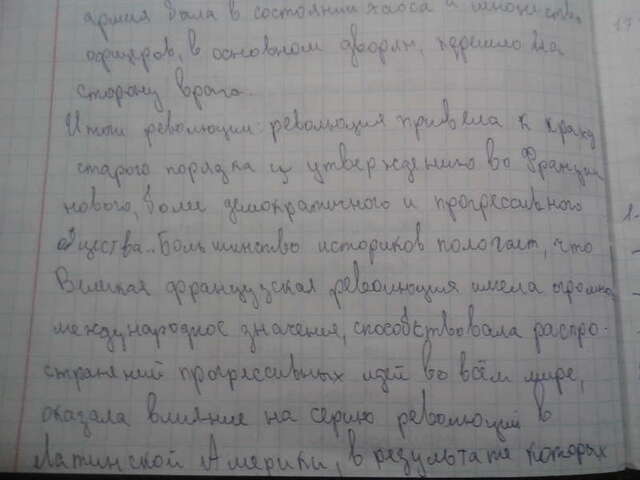 армия была в состоянии хаоса и множество
офицеров, в основном дворян, перешло на
сторону врага.
Итоги революции: революция привела к краху
старого порядка и утверждению во Франции
нового, более демократичного и прогрессивного
общества. Большинство историков пологает, что
Великая французская революция имела огромное
международное значения, способствовала распро-
странений прогрессивных идей во всём мире,
оказала влияние на серию революций в
Латинской Америки, в результате которых
17
1-